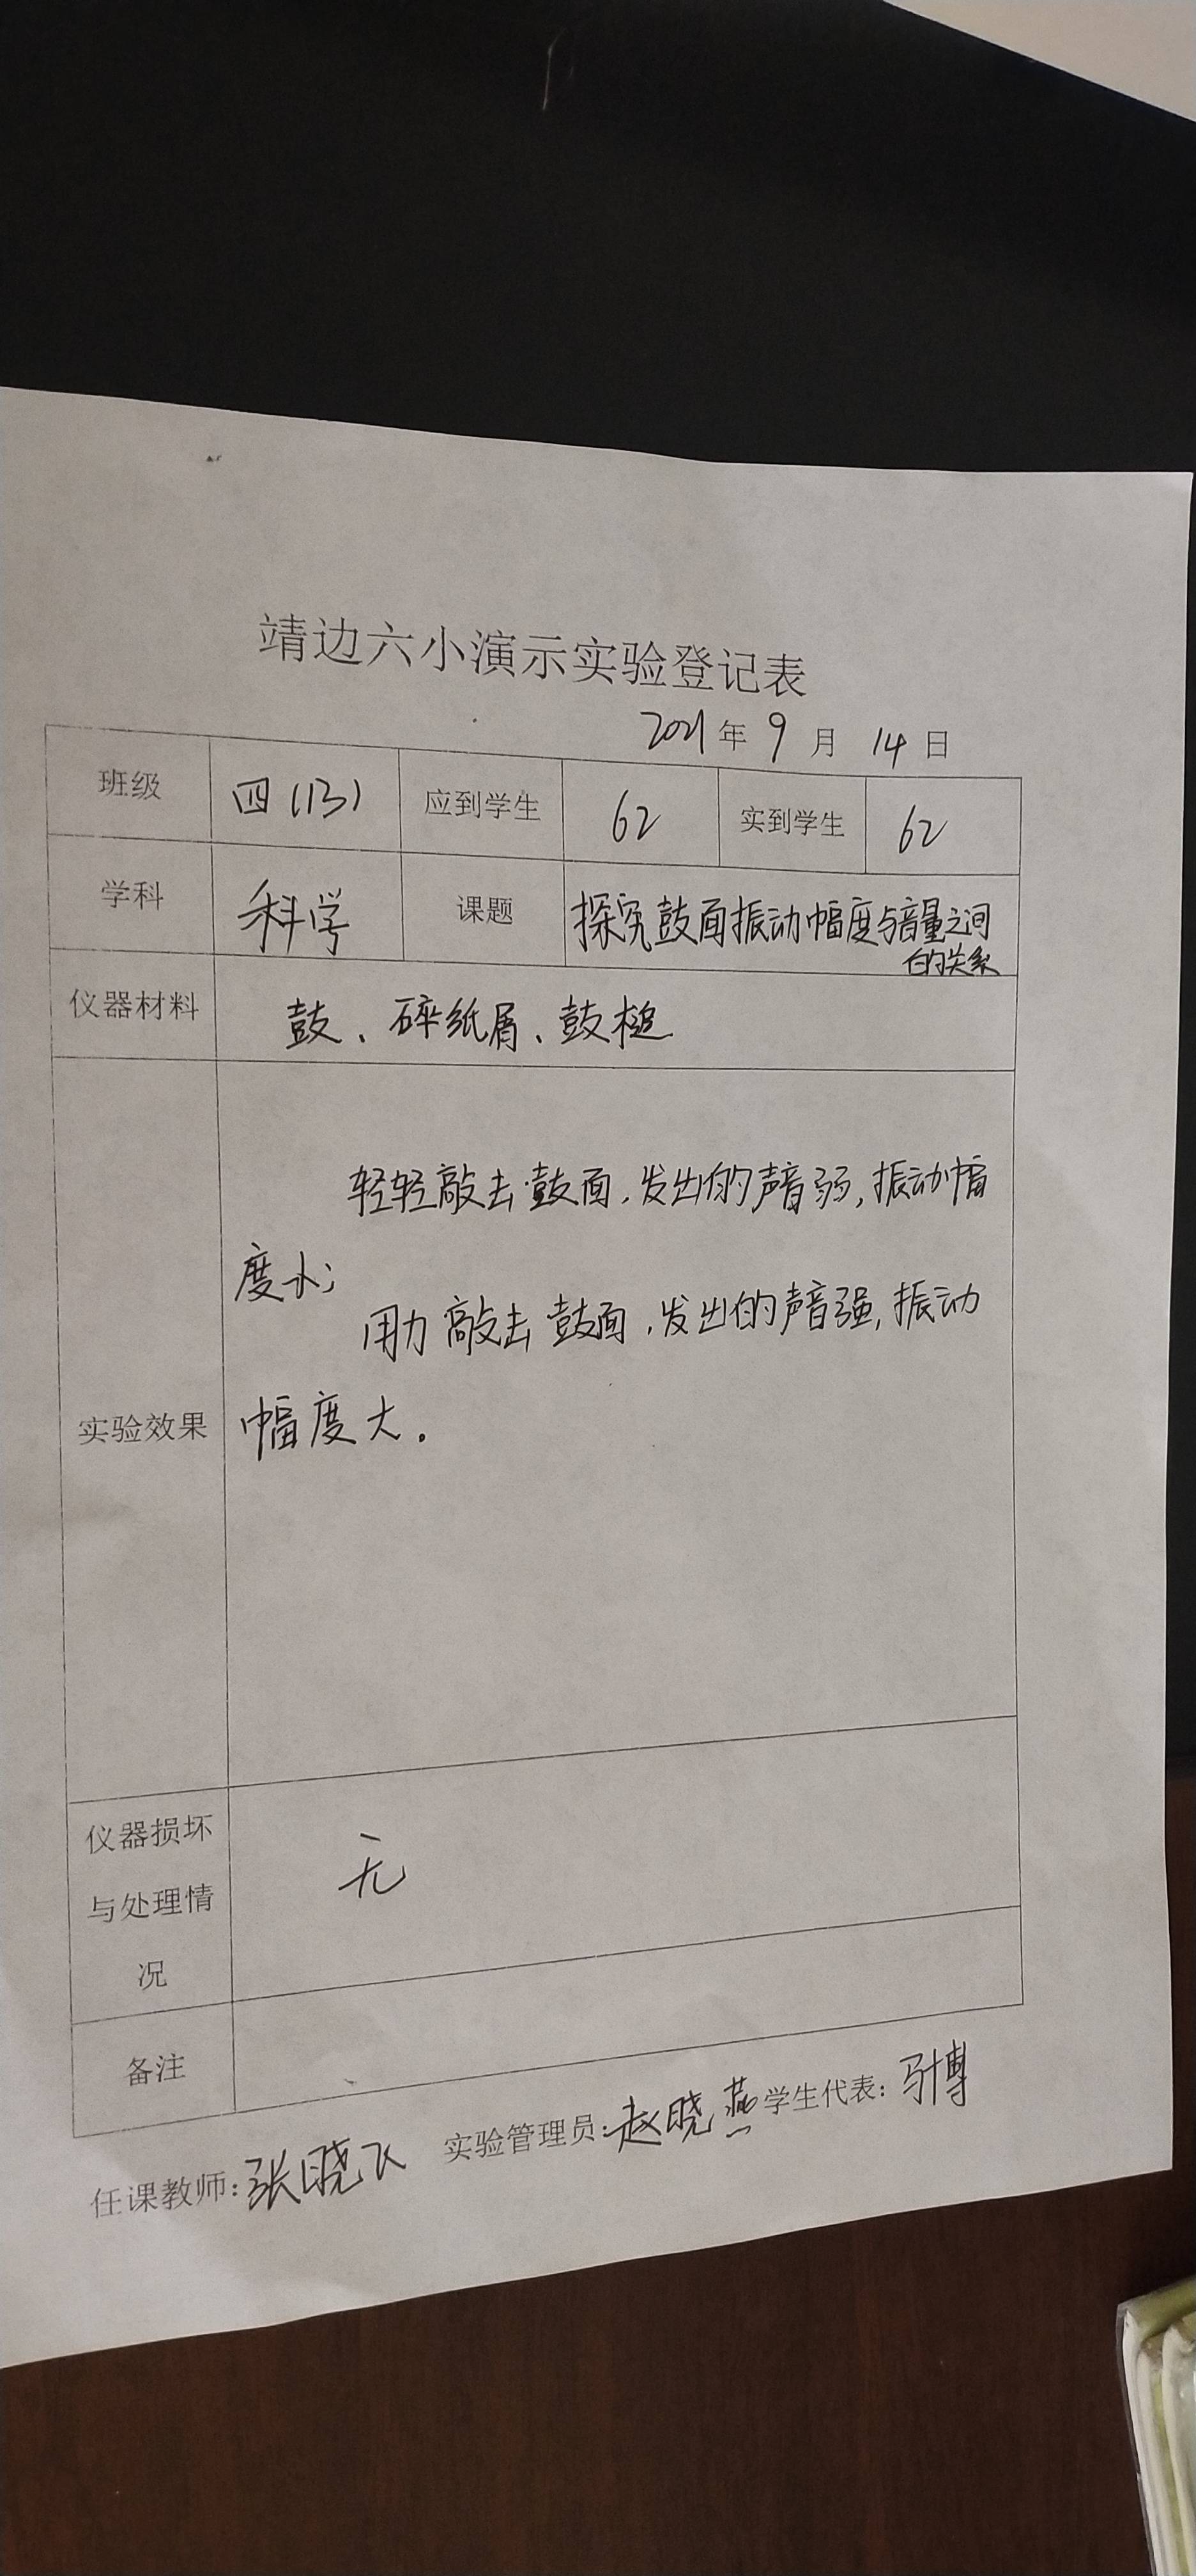 靖边六小演示实验登记表
2021年9月14日
班级 四(13) 应到学生 62 实到学生 62
学科 科学 课题 探究鼓面振动幅度与音量之间
的关系
仪器材料 鼓、碎纸屑、鼓槌
轻轻敲击鼓面,发出的声音弱,振动幅
度小;
用力敲击鼓面,发出的声音强,振动
实验效果 幅度大。
仪器损坏
与处理情 无
况
备注
任课教师:张晓飞 实验管理员:赵晓燕 学生代表:马博